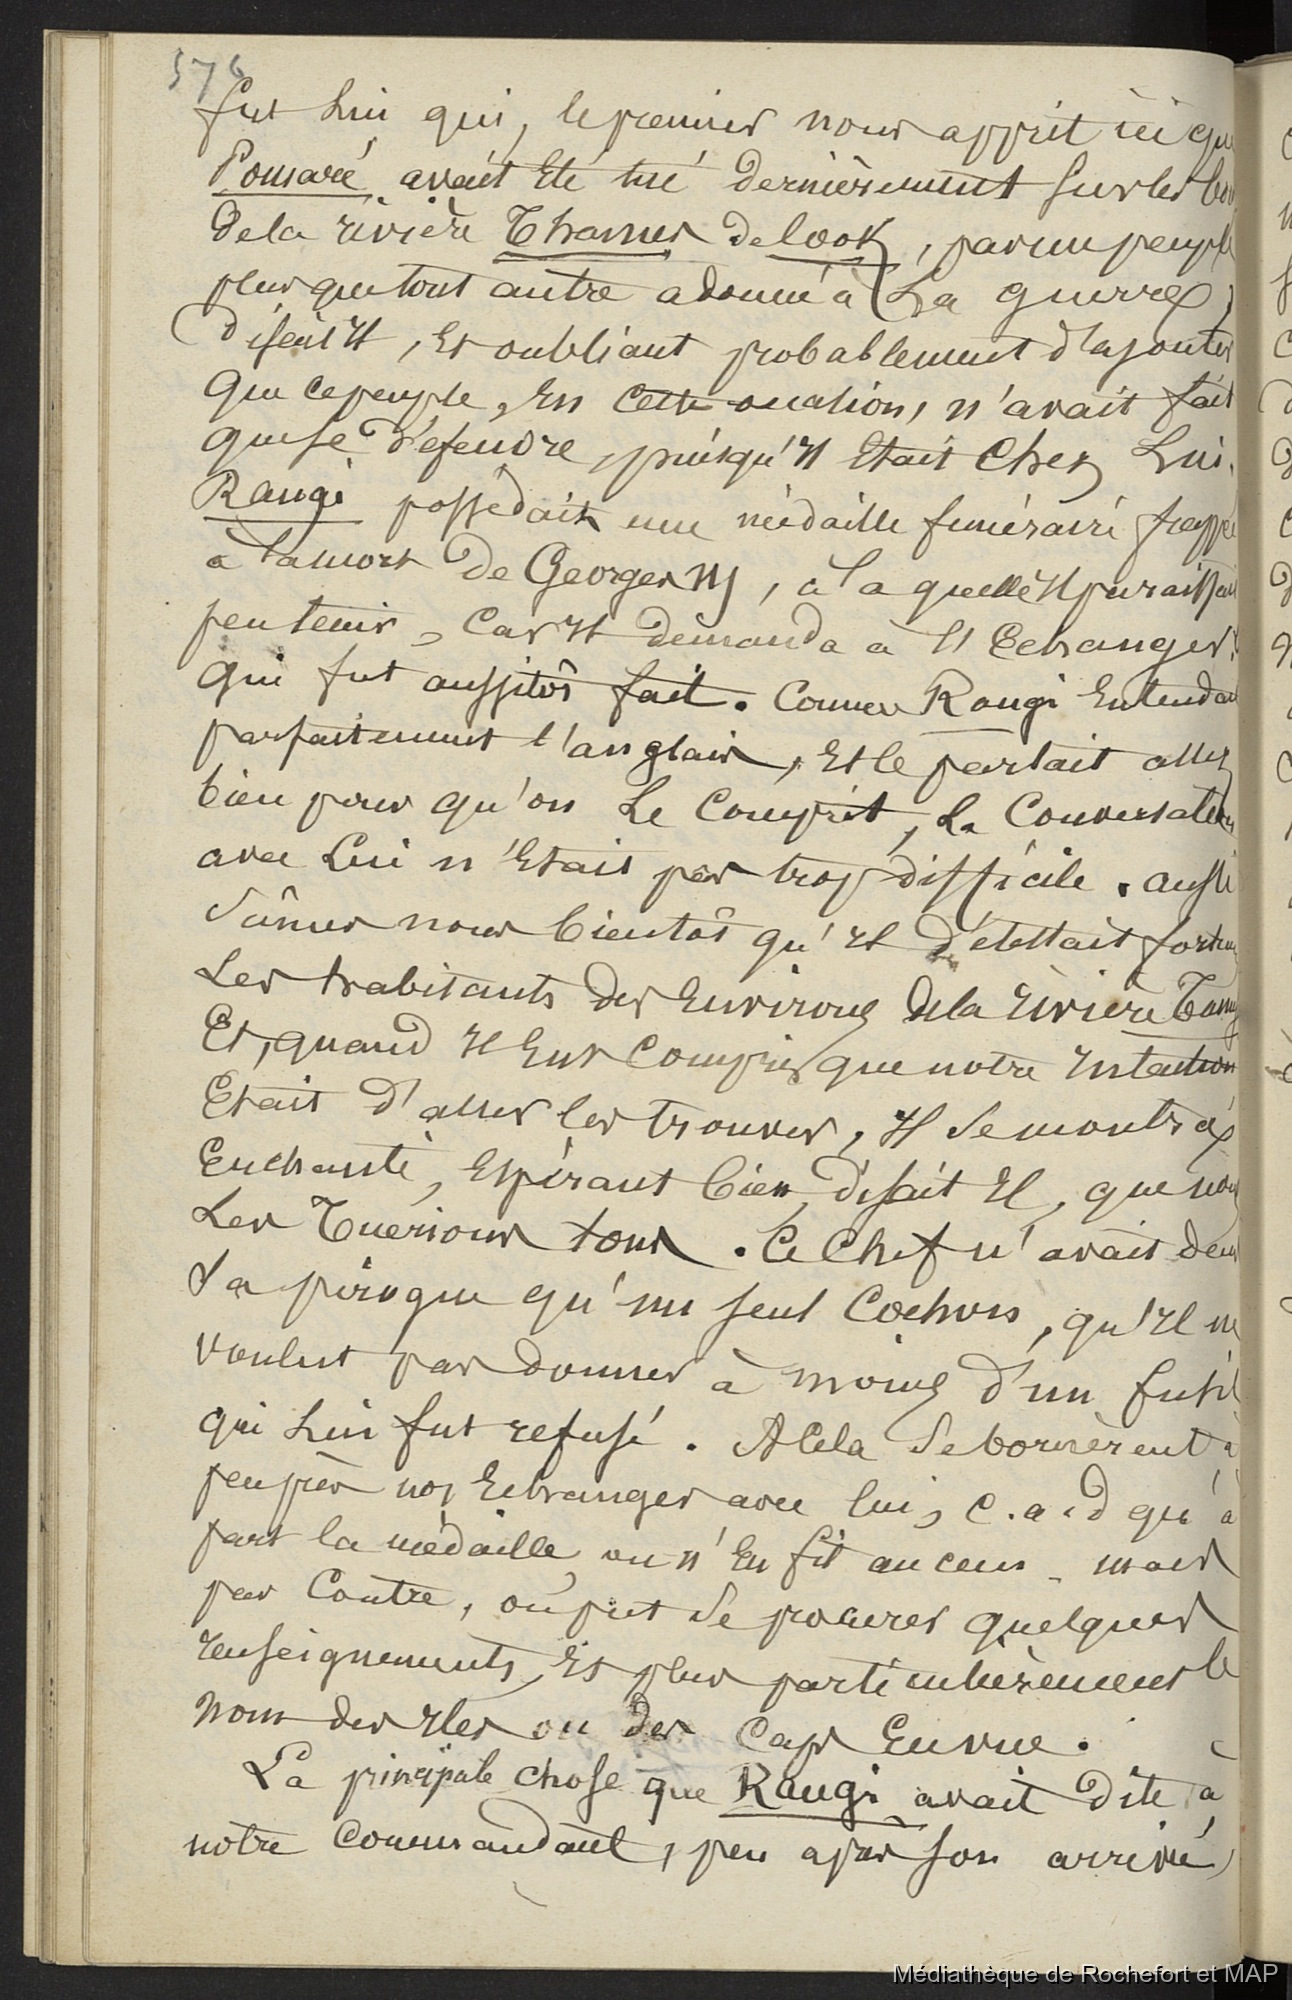 576
fut Lui qui, le premier nous apprit ici que
Pomaré, avait Eté tué dernièrement sur les bor
de la rivière Thames de Cook, par un peuple
plus que tout autre adonné à La guerre,
disait Il, Et oubliant probablement d'ajouter
que ce peuple, En Cette occasion, n'avait fait
que se défendre, puisqu'Il Etait Chez Lui.
Rangi possédait une médaille funéraire frappée
à la mort de Georges III, à laquelle Il paraissait
peu tenir, Car Il demanda à l'Echanger,
qui fut aussitôt fait. Comme Rangi Entendait
parfaitement l'anglais, Et le parlait assez
bien pour qu'on Le Comprit, La Conversation
avec Lui n'Etait pas trop difficile. aussi
Sûmes nous bientôt qu'Il détestait fort
Les habitants des Environs de la Rivière Tamise
Et, quand Il Eut Compris que notre Intention
Etait d'aller les trouver, Il Se montra
Enchanté, Espérant bien, disait Il, que nous
Les Tuerions tous. Ce Chef n'avait dans
Sa pirogue qu'un seul Cochon, qu'Il ne
voulut pas donner à moins d'un fusil
qui Lui fut refusé. A Cela Se bornèrent à
peu près nos Echanges avec lui, c.a.d qu'à
part la médaille, on n'En fit aucun - mais
par Contre, on put Se procurer quelques
renseignements, Et plus particulièrement le
nom des Iles ou des Caps En vue.
La principale chose que Rangi avait dite à
notre Commandant, peu après son arrivée,
Médiathèque de Rochefort et MAP